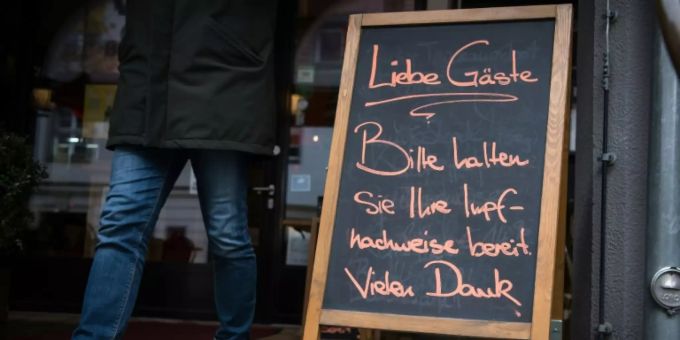 Liebe Gäste
Bitte halten
Sie Ihre Impf-
nachweise bereit.
Vielen Dank